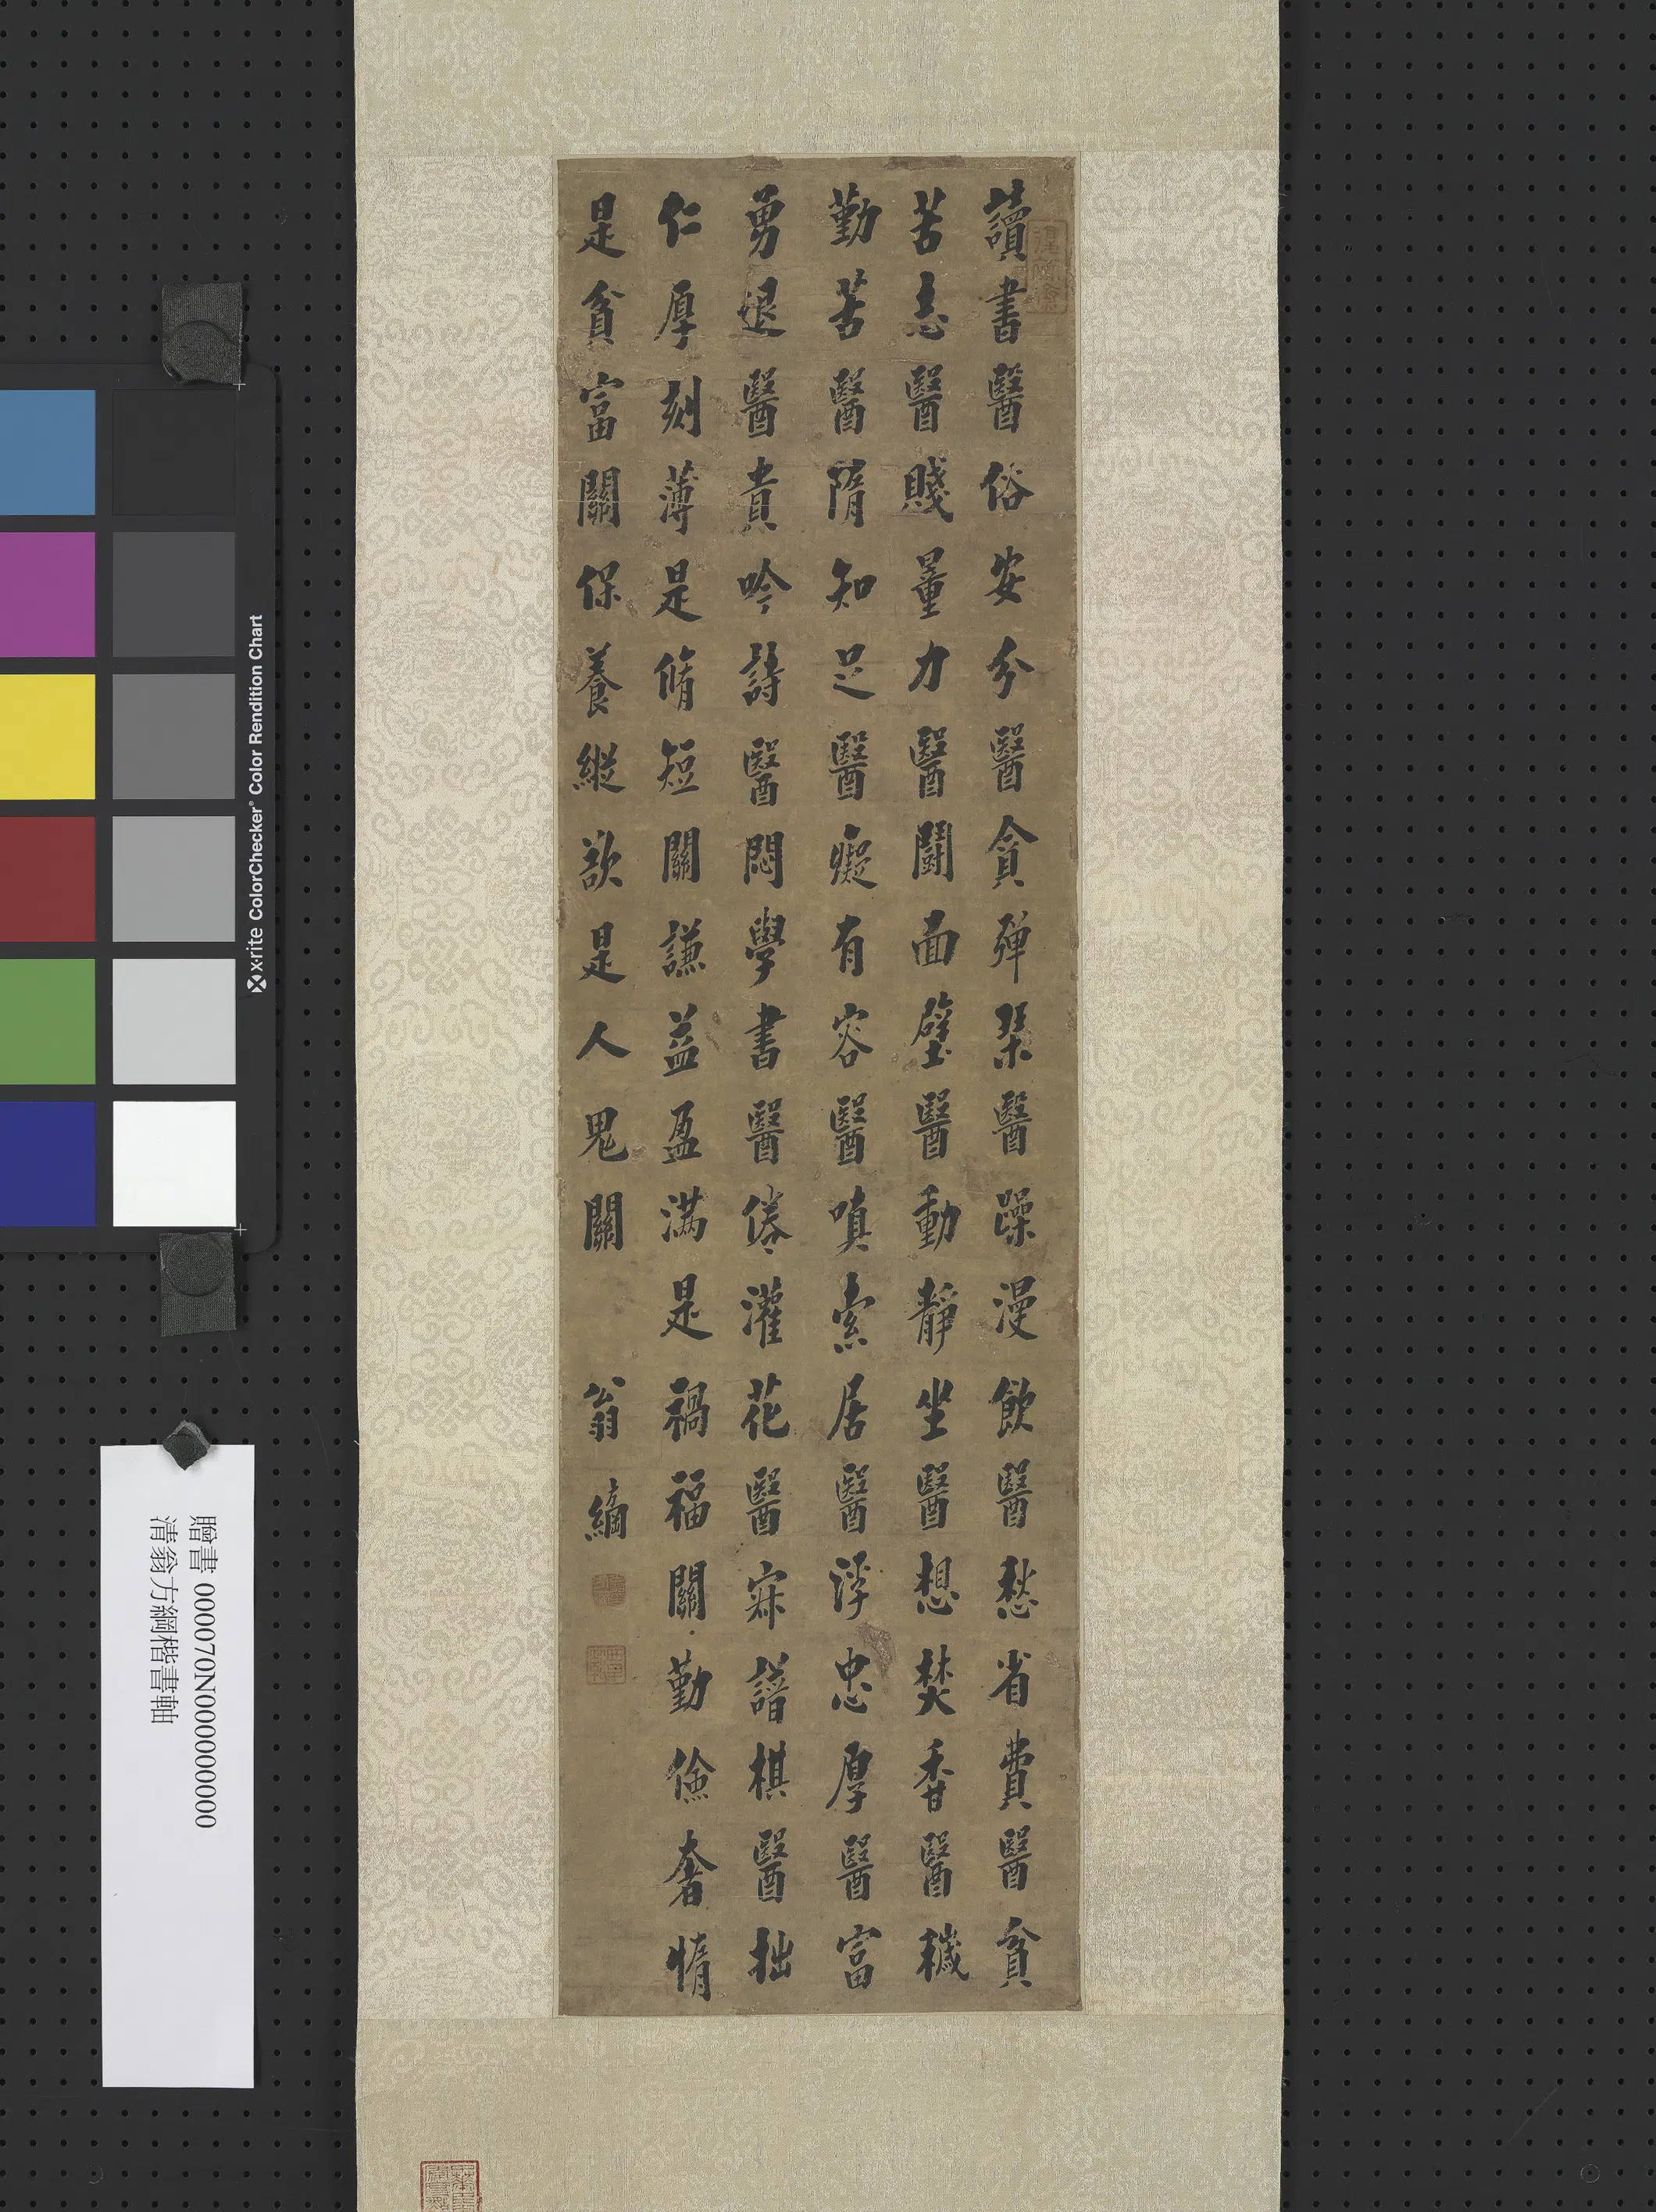 讀書醫俗安分醫貪彈琹醫躁漫飲醫愁省費醫貧
苦志醫賤量力醫鬭面壁醫動靜坐醫想焚香醫穢
勤苦醫隋知足醫癡有容醫嗔索居醫浮忠厚醫富
勇退醫貴吟詩醫悶學書醫倦灌花醫寂譜棋醫拙
仁厚刻薄是脩短關謙益盈滿是禍福關勤儉奢惰
是貧富關保養縱欲是人鬼關 翁方綱
x·rite ColorChecker® Color Rendition Chart
贈書 000070N000000000
清翁方綱楷書軸